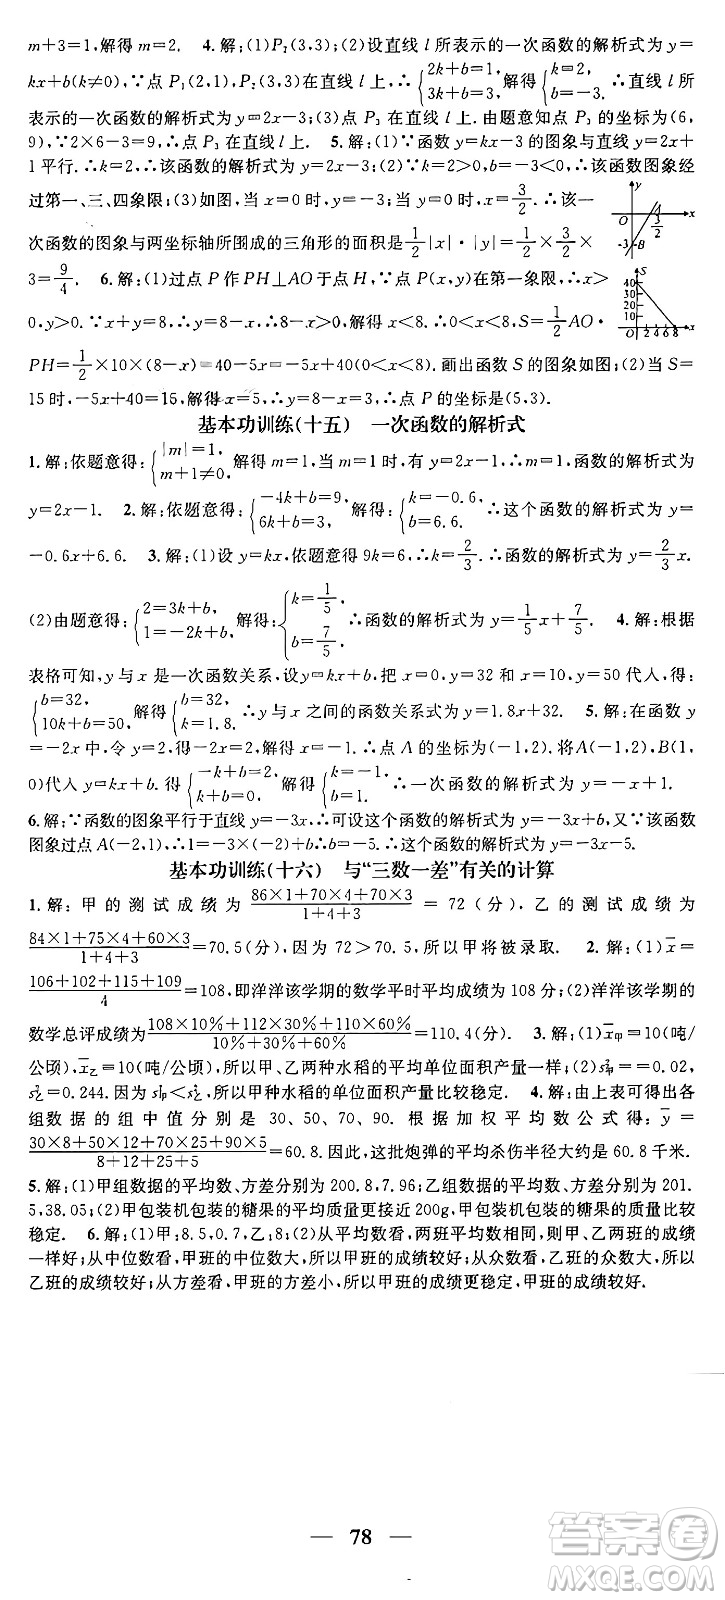 m+3=1,解得 m=2. 4.解:(1)P₂(3,3);(2)设直线 l 所表示的一次函数的解析式为 y=
kx+b(k≠0).∵点 P₁(2,1),P₂(3,3)在直线 l 上,∴{2k+b=1, 3k+b=3, 解得{k=2, b=-3. ∴直线 l 所
表示的一次函数的解析式为 y=2x-3;(3)点 P₃ 在直线 l 上.由题意知点 P₃ 的坐标为(6,
9),∵2×6-3=9,∴点 P₃ 在直线 l 上. 5.解:(1)∵函数 y=kx-3 的图象与直线 y=2x+
1 平行.∴k=2;(2)∵k=2>0,b=-3<0,∴该函数的解析式为 y=2x-3,∴该函数图象经
过第一、三、四象限;(3)如图,当 x=0 时,y=-3,当 y=0 时,x=3/2,∴该一
次函数的图象与两坐标轴所围成的三角形的面积是1/2|x|·|y|=1/2×3/2×
3=9/4. 6.解:(1)过点 P 作 PH⊥AO 于点 H,∵点 P(x,y)在第一象限,∴x>
0,y>0.∵x+y=8,∴y=8-x,∴8-x>0,解得 x<8.∴0<x<8,S=1/2AO·
PH=1/2×10×(8-x)=40-5x=-5x+40(0<x<8).画出函数 S 的图象如图;(2)当 S=
15 时,-5x+40=15,解得 x=5,∴y=8-5=3,∴点 P 的坐标是(5,3).
y
A
O
3/2
x
-3
B
S
40
30
20
10
O
2 4 6 8 x
基本功训练(十五) 一次函数的解析式
1.解:依题意得:{|m|=1, m+1≠0. 解得 m=1,当 m=1 时,有 y=2x-1,∴函数的解析式为
y=2x-1. 2.解:依题意得:{-4k+b=9, 6k+b=3, 解得:{k=-0.6, b=6.6. ∴这个函数的解析式为 y=
-0.6x+6.6. 3.解:(1)设 y=kx,依题意得 9k=6,∴k=2/3.∴函数的解析式为 y=2/3x.
(2)由题意得:{2=3k+b, 1=-2k+b, 解得:{k=1/5, b=7/5. ∴函数的解析式为 y=1/5x+7/5. 4.解:根据
表格可知,y 与 x 是一次函数关系,设 y=kx+b,把 x=0,y=32 和 x=10,y=50 代人,得:
{b=32, 10k+b=50, 解得{b=32, k=1.8. ∴y 与 x 之间的函数关系式为 y=1.8x+32. 5.解:在函数 y
=-2x 中,令 y=2,得-2x=2,解得 x=-1.∴点 A 的坐标为(-1,2).将A(-1,2),B(1,
0)代人 y=kx+b.得{-k+b=2, k+b=0, 解得{k=-1, b=1. ∴一次函数的解析式为 y=-x+1.
6.解:∵函数的图象平行于直线 y=-3x,∴可设这个函数的解析式为 y=-3x+b.又∵该函数
图象过点 A(-2,1),∴1=-3×(-2)+b.∴b=-5.∴这个函数的解析式为 y=-3x-5.
基本功训练(十六) 与“三数一差”有关的计算
1.解:甲的测试成绩为 86×1+70×4+70×3/1+4+3 = 72(分),乙的测试成绩为
84×1+75×4+60×3/1+4+3=70.5(分),因为 72>70.5,所以甲将被录取. 2.解:(1)x̄=
106+102+115+109/4=108,即洋洋该学期的数学平时平均成绩为 108 分;(2)洋洋该学期的
数学总评成绩为108×10%+112×30%+110×60%/10%+30%+60%=110.4(分). 3.解:(1)x̄甲=10(吨/
公顷),x̄乙=10(吨/公顷),所以甲、乙两种水稻的平均单位面积产量一样;(2)s²甲=0.02,
s²乙=0.244.因为 s²甲<s²乙,所以甲种水稻的单位面积产量比较稳定. 4.解:由上表可得出各
组数据的组中值分别是 30、50、70、90. 根据加权平均数公式得: ȳ =
30×8+50×12+70×25+90×5/8+12+25+5=60.8.因此,这批炮弹的平均杀伤半径大约是 60.8 千米.
5.解:(1)甲组数据的平均数、方差分别为 200.8,7.96;乙组数据的平均数、方差分别为 201.
5,38.05;(2)甲包装机包装的糖果的平均质量更接近200g,甲包装机包装的糖果的质量比较
稳定. 6.解:(1)甲:8.5,0.7,乙:8;(2)从平均数看,两班平均数相同,则甲、乙两班的成绩
一样好;从中位数看,甲班的中位数大,所以甲班的成绩较好;从众数看,乙班的众数大,所以
乙班的成绩较好;从方差看,甲班的方差小,所以甲班的成绩更稳定,甲班的成绩较好.
— 78 —
答案卷
MXQE.COM